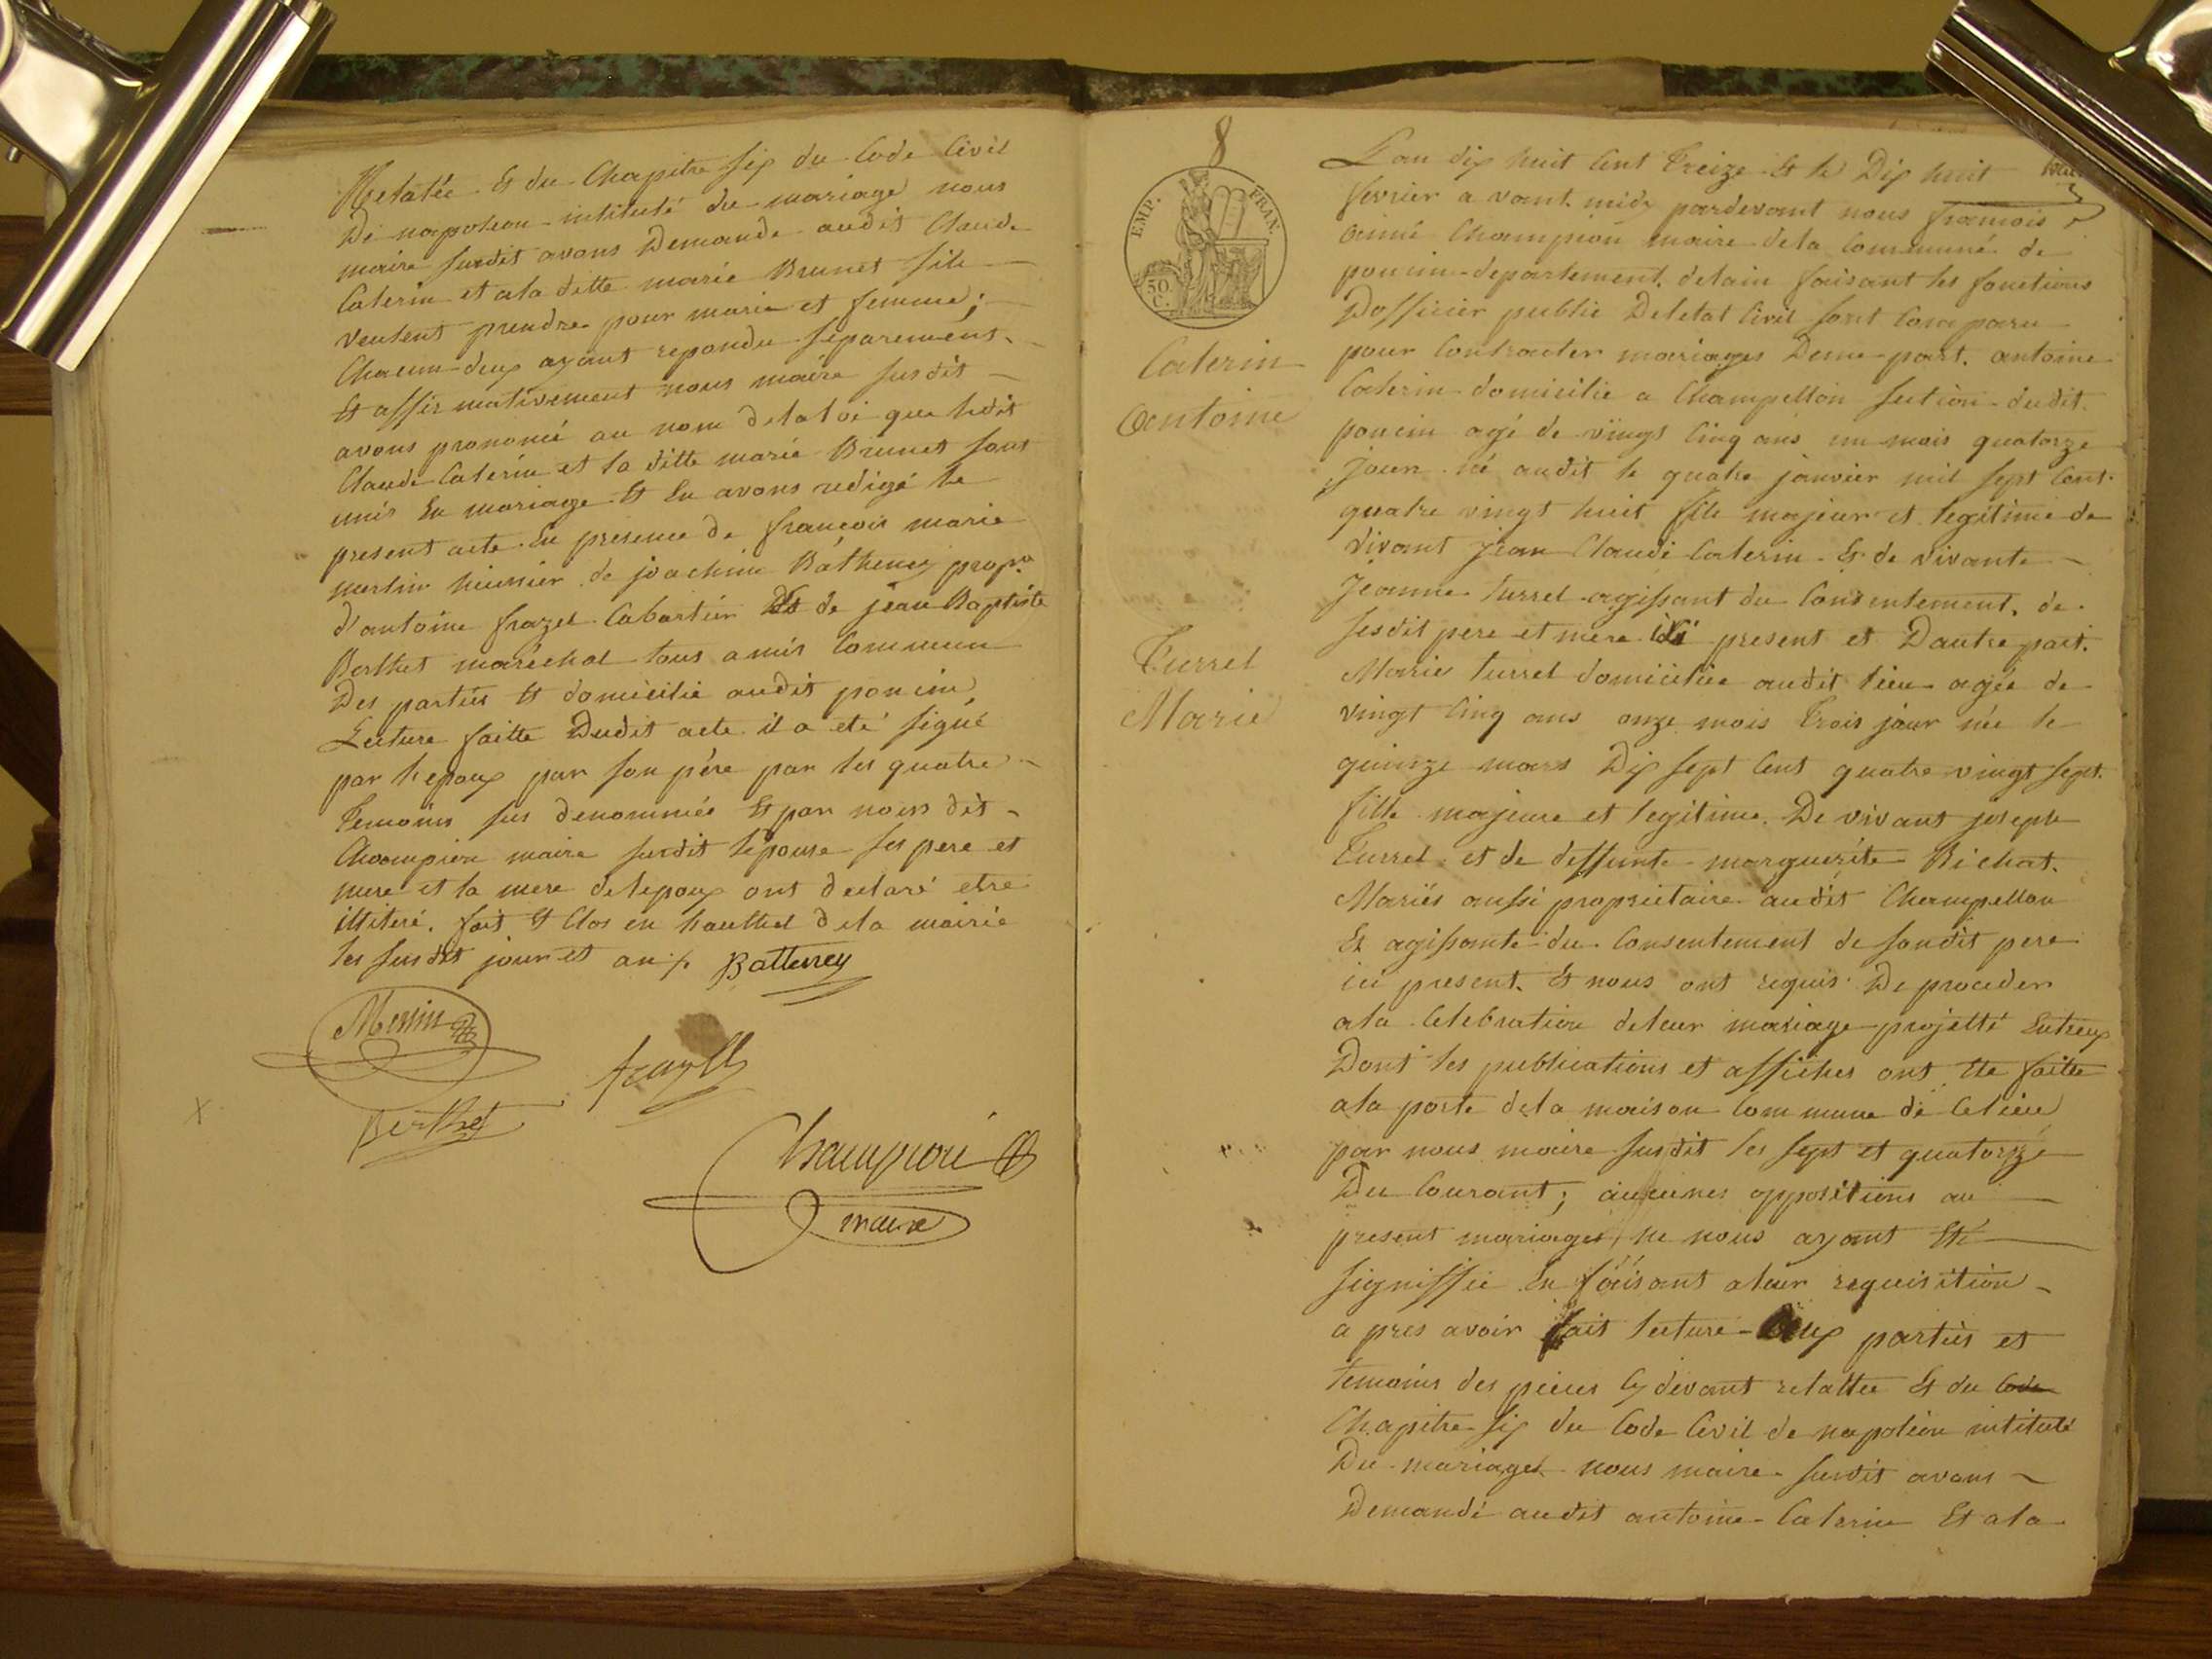 Relatée Et du Chapitre six du Code Civil
De napoleon intitulé du mariage nous
maire susdit avons Demande audit Claude
Caterin et ala ditte marie Brunet sils
veulent prendre pour marie et femme;
Chacun deux ayant repondu séparement
Et affirmativement nous maire susdit
avons prononcé au nom dela loi que ledit
Claude Caterin et la ditte marie Brunet sont
unis En mariage Et En avons redigé le
present acte En presence de françois marie
huissier de joachim Bathency propre
d'antoine frazet Cabartier Et de jean Baptiste
Berthet maréchal tous amis Commun
Des parties Et domicilié audit poncin
Lecture faitte Dudit acte il a été signé
par lepoux par son père par les quatre
Temoins sus denommée Et par nous dit
Champion maire susdit lepouse ses pere et
mere et la mere delepoux ont declaré etre
illiteré. fait Et Clos en hauthel dela mairie
les susdit jour et an
Batteney
Berthet
Champion
maire
8
EMP. FRAN.
50 C.
Caterin
Antoine
Turrel
Marie
Lan dix huit Cent Treize Et le Dix huit
fevrier avant midy pardevant nous francois
aimé Champion maire dela Commune de
poncin departement delain faisant les fonctions
Dofficier public Deletat Civil sont Comparu
pour Contracter mariages Dune part. antoine
Caterin domicilie a Champellon section dudit
poncin agé de vingt Cinq ans un mois quatorze
jour né audit le quatre janvier mil sept Cent
quatre vingt huit fils majeur et legitime de
vivant jean Claude Caterin Et de vivante
Jeanne turrel agissant du Consentement de
sesdit pere et mere ici present et Dautre part.
Marie turrel domiciliée audit lieu agée de
vingt Cinq ans onze mois Trois jour née le
quinze mars Dix sept Cent quatre vingt sept
fille majeure et legitime De vivant joseph
Turrel et de deffunte marguerite Bichat.
Mariés aussi propriétaire audit Champellon
Et agissante du Consentement de sondit pere
ici present. Et nous ont requis De proceder
ala Celebration deleur mariage projetté Entreux
Dont les publications et affiches ont Eté faitte
ala porte dela maison Commune de Celieu
par nous maire susdit les sept et quatorze
Du Courant; aucunes oppositions au
present mariages ne nous ayant Eté
signiffie En faisant aleur requisition
apres avoir fait lecture aux parties et
temoins des pieces Cy devant relattée Et du Code
Chapitre six du Code Civil de napoléon intitulé
Du mariages nous maire susdit avons
Demandé audit antoine Caterin Et ala